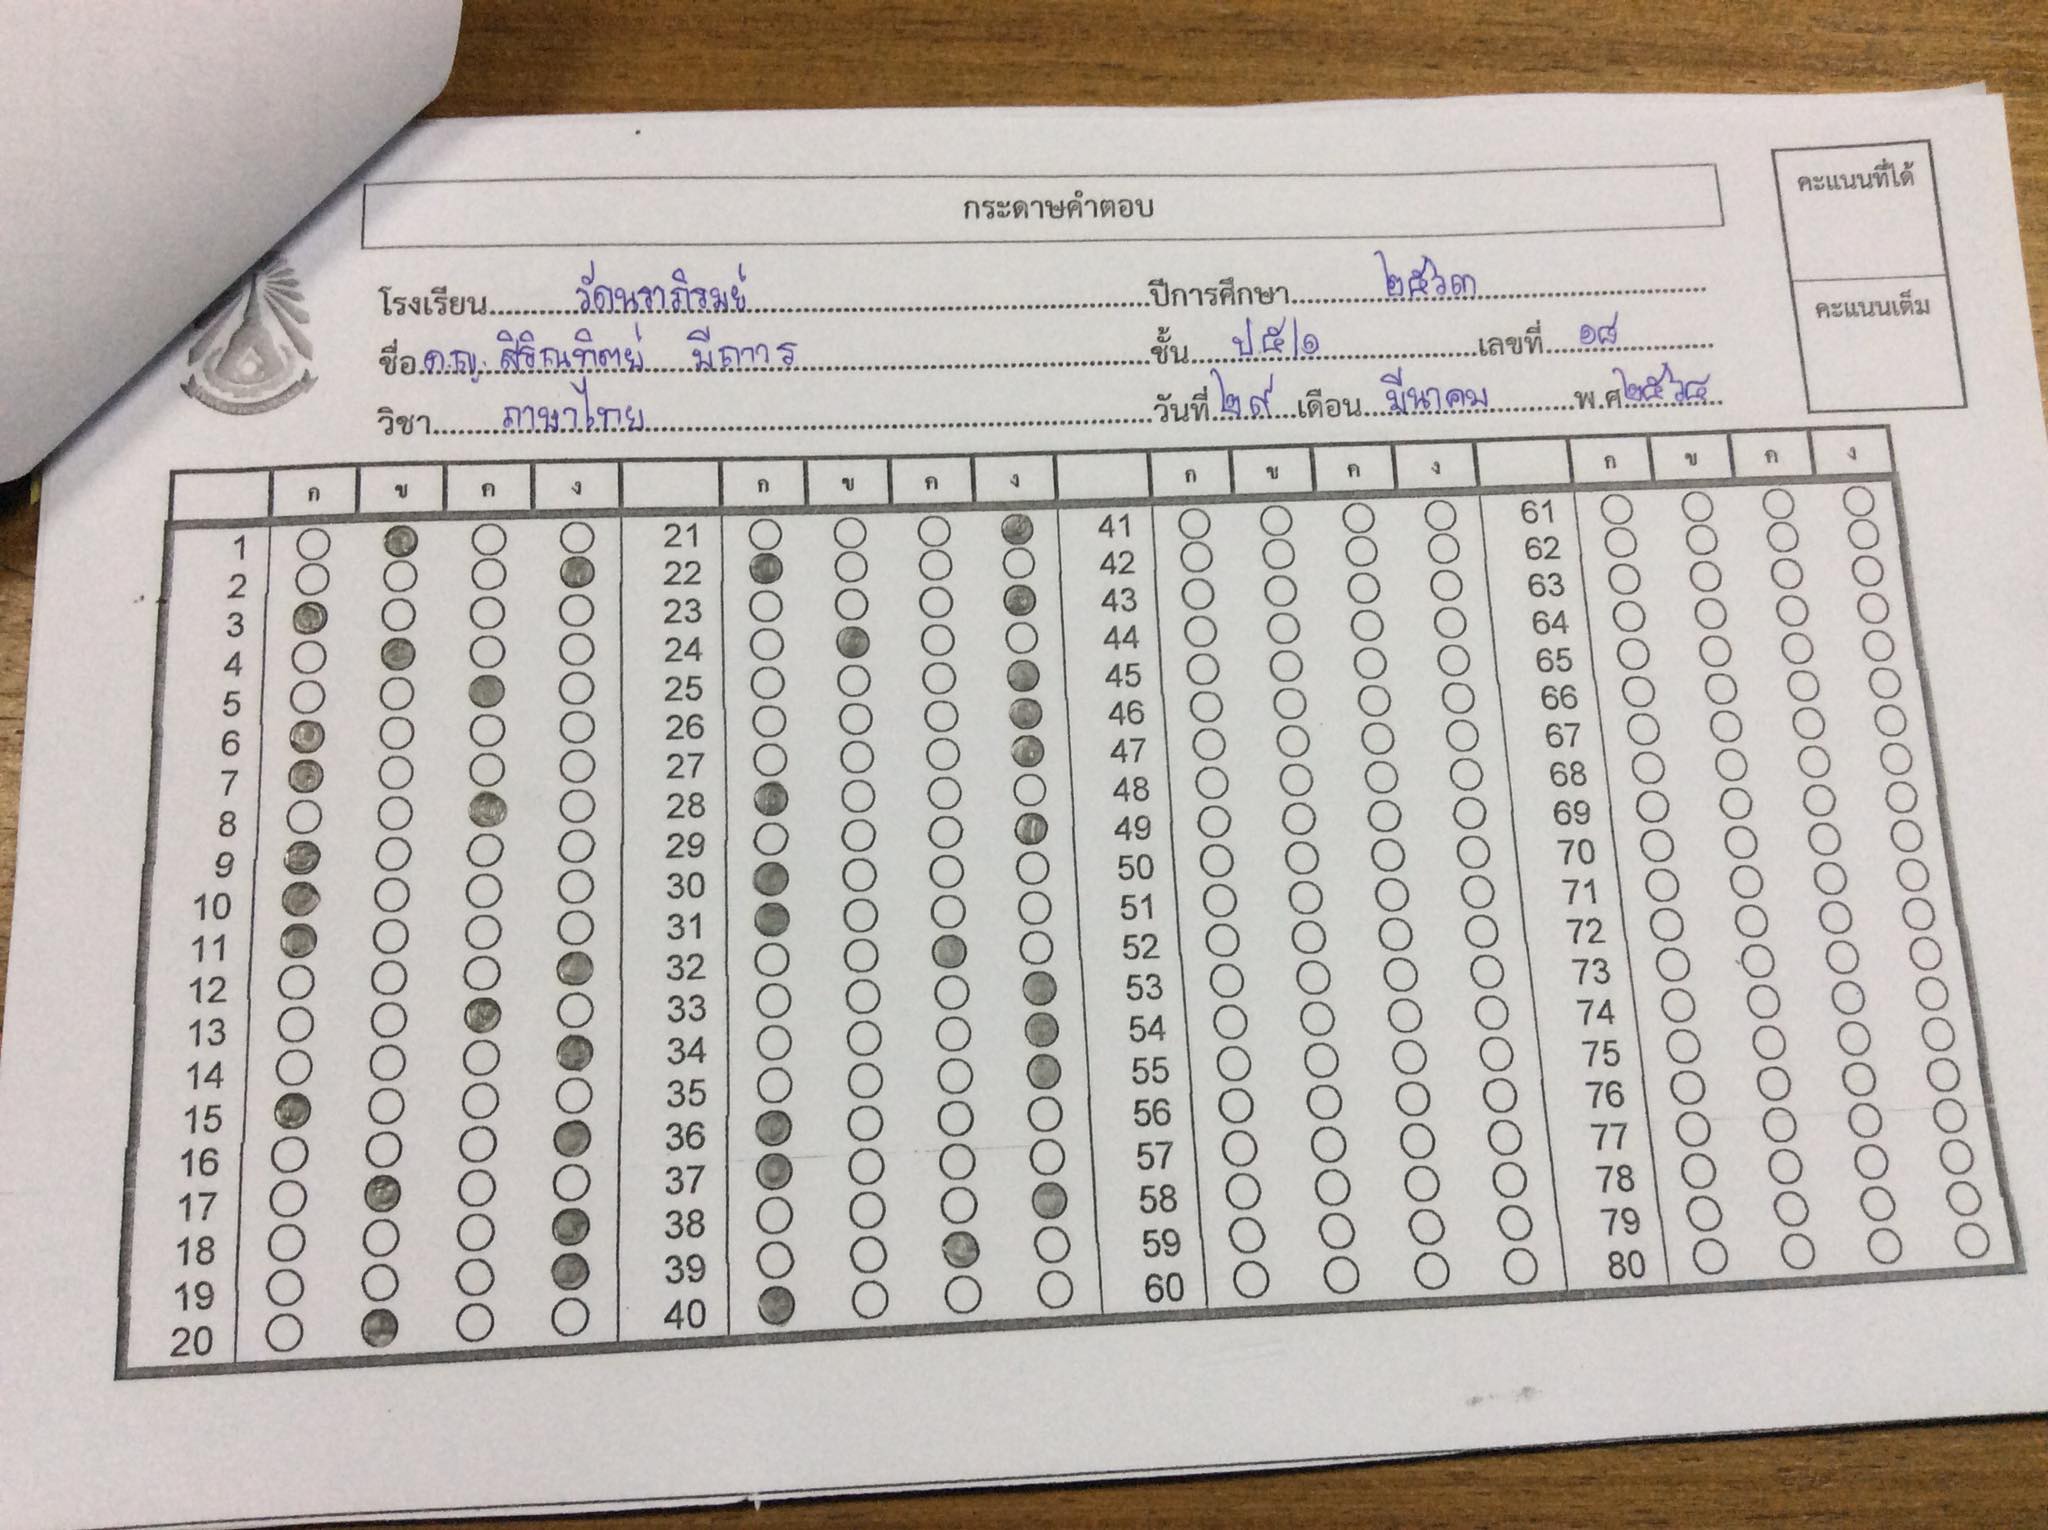 กระดาษคำตอบ
คะแนนที่ได้
คะแนนเต็ม
โรงเรียน วัดนราภิรมย์ ปีการศึกษา ๒๕๖๓
ชื่อ ด.ญ. สิริณทิตย์ มีถาวร ชั้น ป๕/๑ เลขที่ ๑๘
วิชา ภาษาไทย วันที่ ๒๙ เดือน มีนาคม พ.ศ ๒๕๖๔
ก ข ค ง ก ข ค ง ก ข ค ง ก ข ค ง
1 21 41 61
2 22 42 62
3 23 43 63
4 24 44 64
5 25 45 65
6 26 46 66
7 27 47 67
8 28 48 68
9 29 49 69
10 30 50 70
11 31 51 71
12 32 52 72
13 33 53 73
14 34 54 74
15 35 55 75
16 36 56 76
17 37 57 77
18 38 58 78
19 39 59 79
20 40 60 80